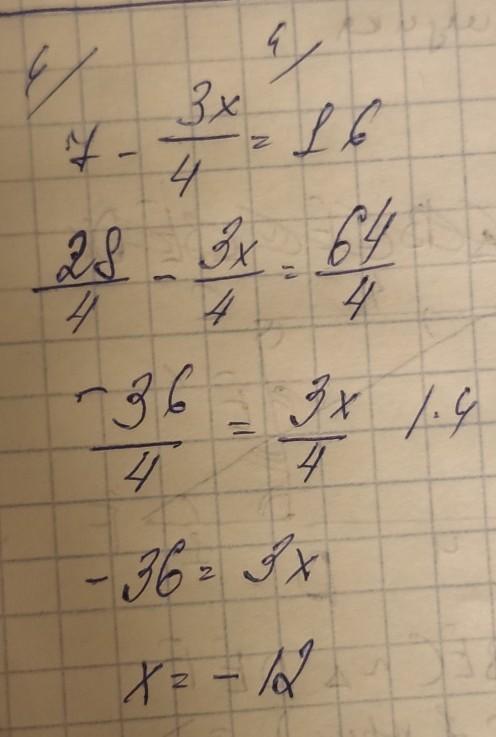 4/ 4/
7 - 3x/4 = 16
28/4 - 3x/4 = 64/4
-36/4 = 3x/4 /·4
-36 = 3x
x = -12